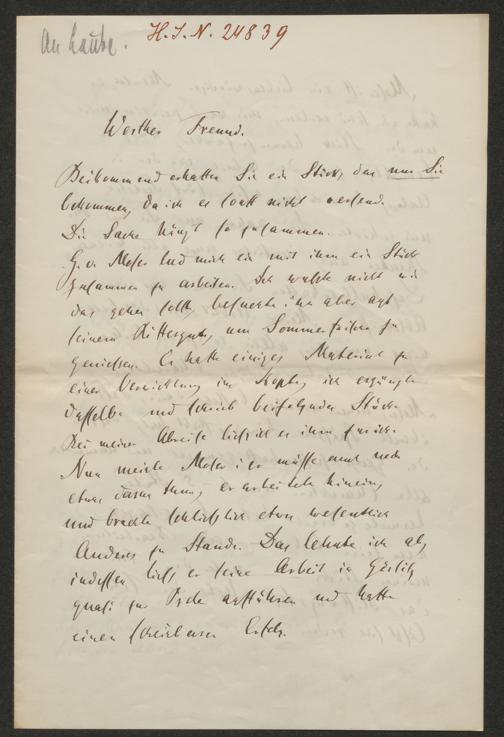 An Laube.
H. I. N. 24839
Werther Freund.
Beikommend erhalten Sie ein Stück, das nur Sie
bekommen, da ich es sonst nicht versende.
Die Sache hängt so zusammen.
G. v. Moser lud mich ein mit ihm ein Stück
zusammen zu arbeiten. Ich wußte nicht wie
das gehen sollte, besuchte ihn aber auf
seinem Rittergute, um Sommerfrische zu
genießen. Er hatte einiges Material zu
einer Verwicklung im Kopfe, ich ergänzte
dasselbe und schrieb beifolgendes Stück.
Bei meiner Abreise ließ ich es ihm zurück.
Nun meinte Moser er müsse auch noch
etwas daran thun, er arbeitete hinein,
und brachte schließlich etwas wesentlich
Anderes zu Stande. Das lehnte ich ab,
indessen ließ er seine Arbeit in Görlitz
quasi zur Probe aufführen und hatte
einen Erfolg.